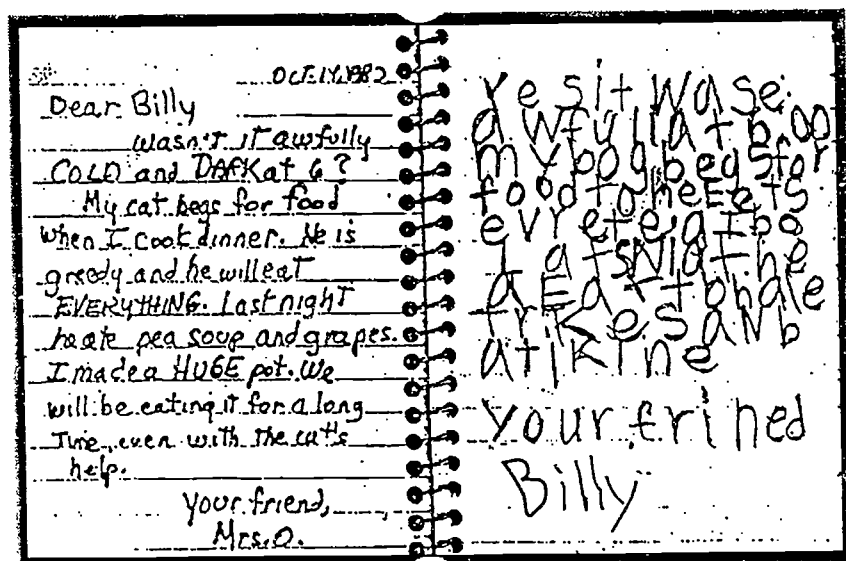 OCT. 14, 1982
Dear Billy
Wasn't it awfully
COLD and DARK at 6?
My cat begs for food
when I cook dinner. He is
greedy and he will eat
EVERYTHING. Last night
he ate pea soup and grapes.
I made a HUGE pot. We
will be eating it for a long
time, even with the cat's
help.
Your friend,
Mrs. O.
Ye sit Wase
a wfullat
my Dog begsfor
food to heEets
evrete
L atsNiat he
a Eat
atikine
Your frined
Billy